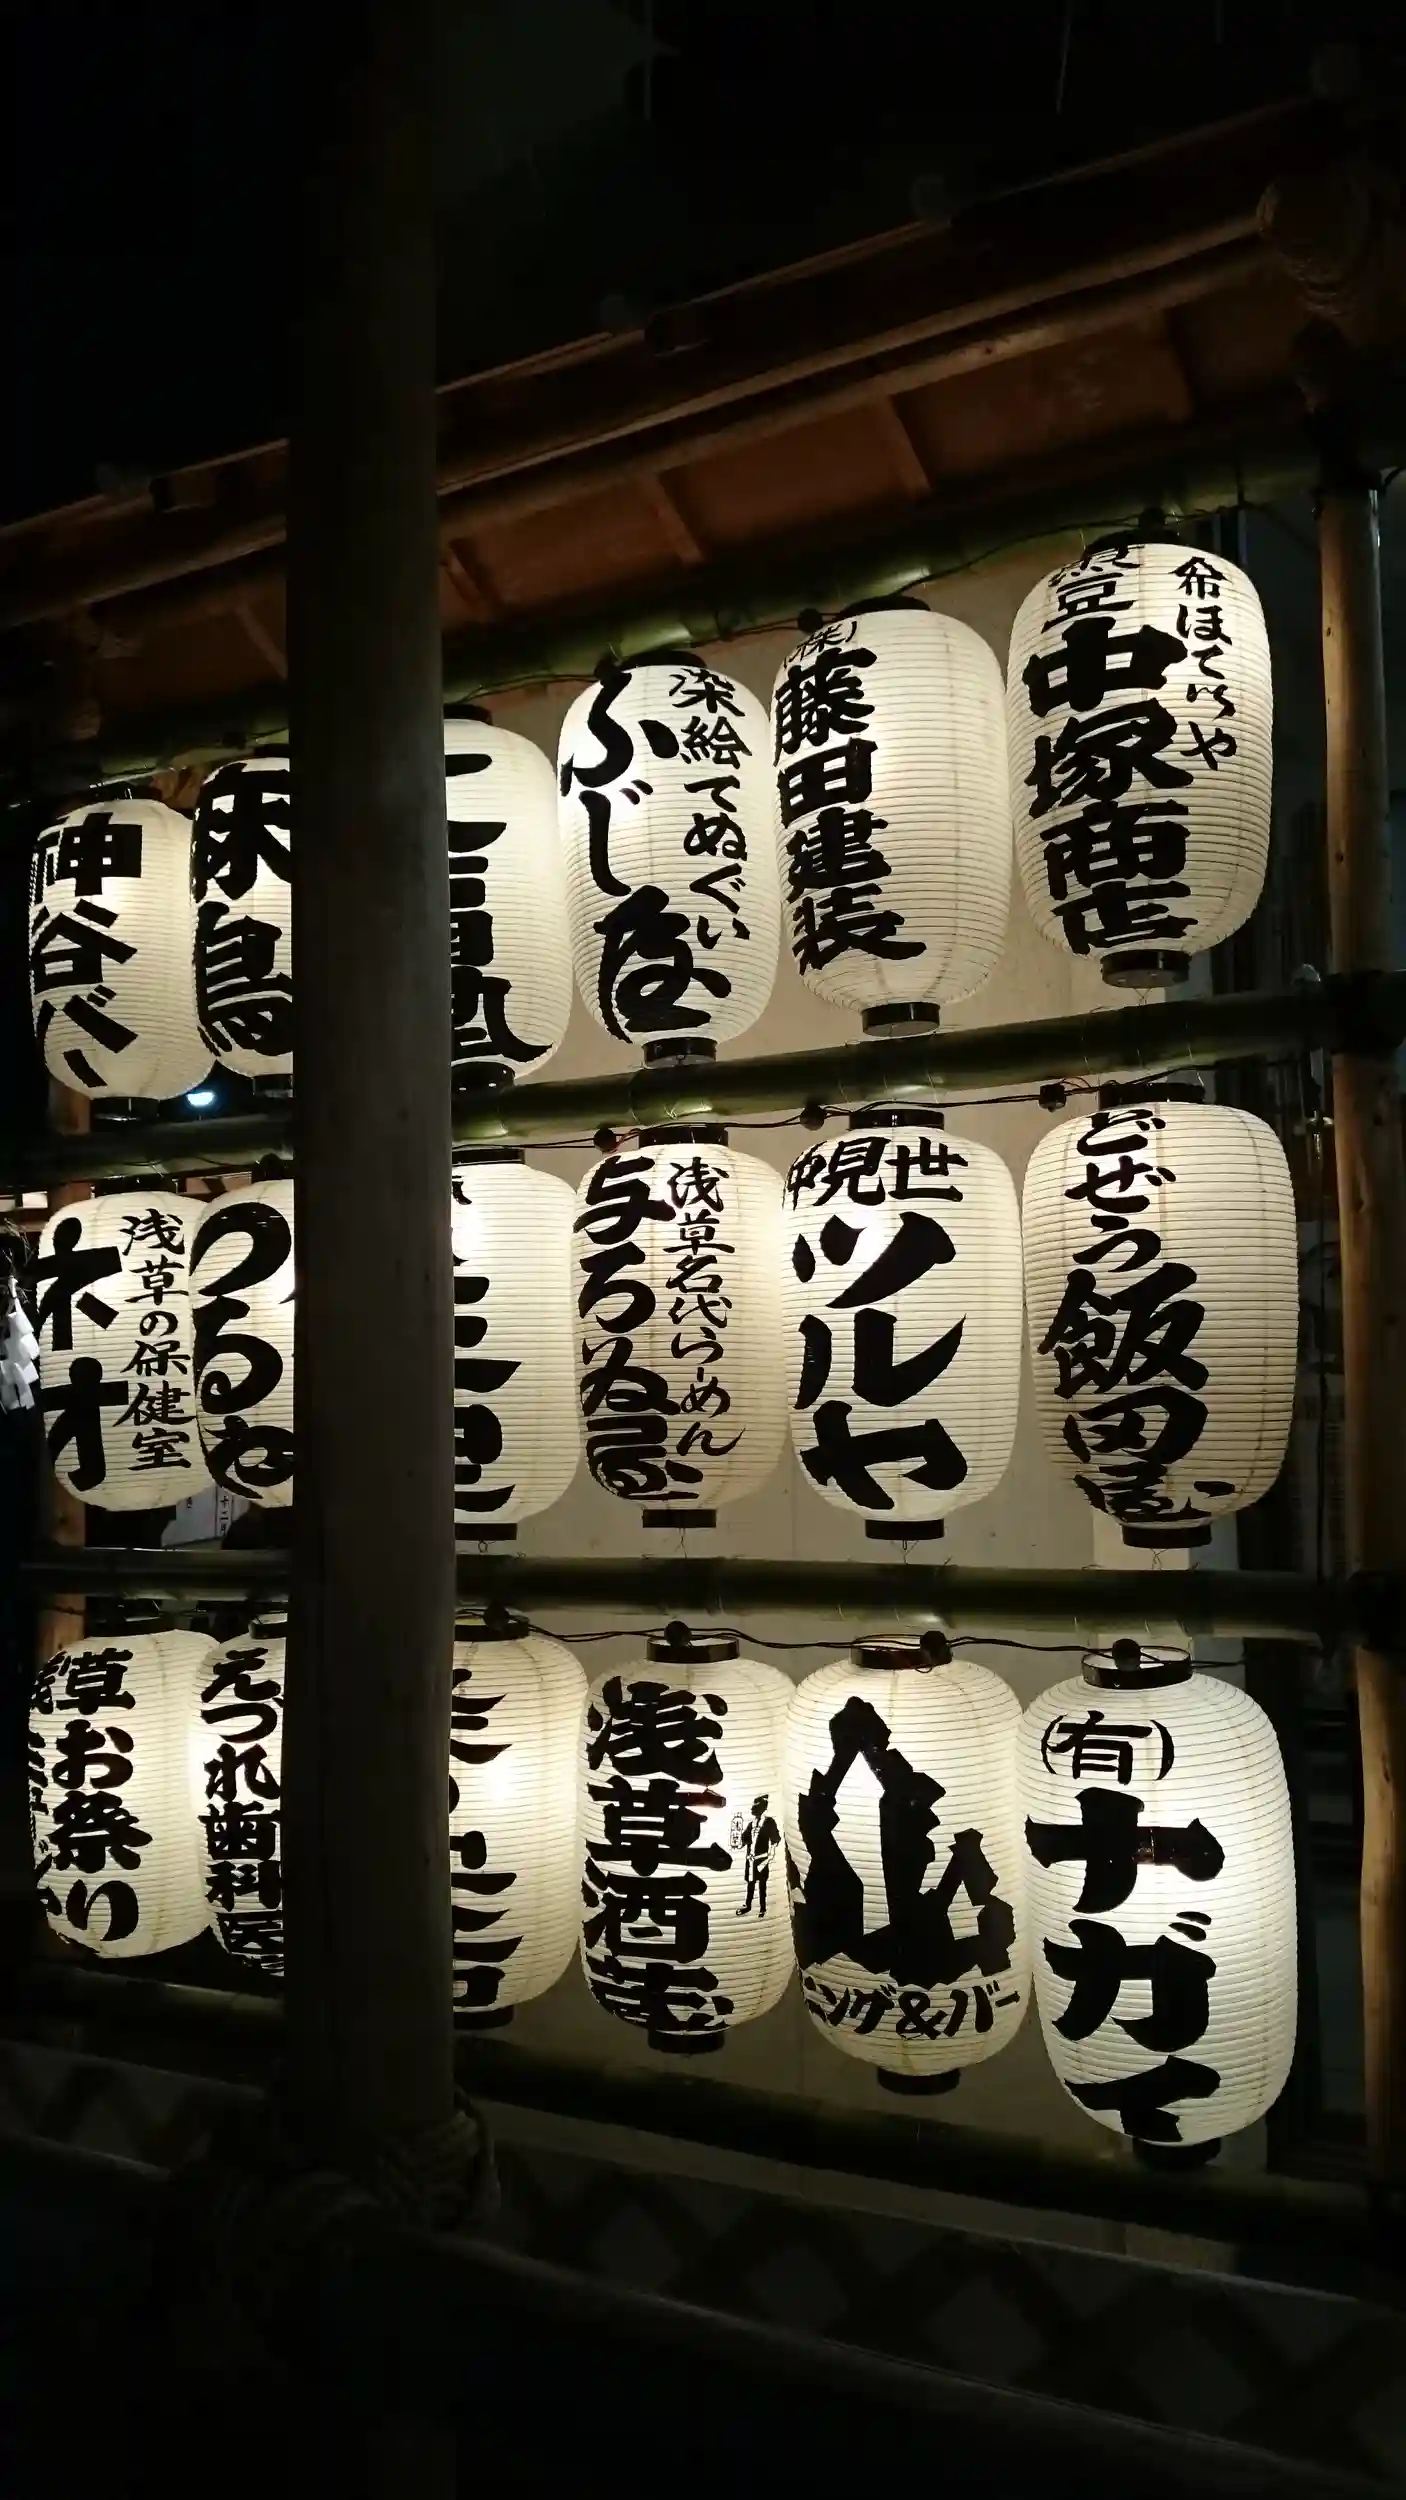 煮豆
布ほていや
中塚商店
(株)
藤田建装
染絵てぬぐい
ふじ屋
神谷バー
どぜう
飯田屋
世現
ツルヤ
浅草名代らーめん
与ろゐ屋
つるや
浅草の保健室
ネオ
(有)
ナガイ
ング&バー
浅草酒蔵
えづれ歯科医
浅草お祭り